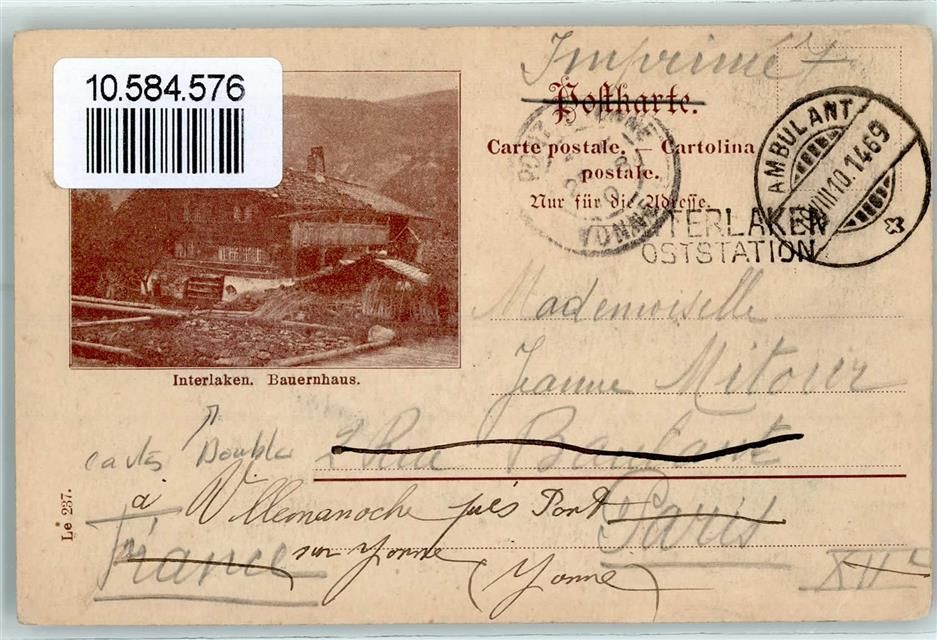 10.584.576
Imprimé
Postkarte.
Carte postale. — Cartolina
postale.
Nur für die Adresse.
AMBULANT
VIII 10.1469
INTERLAKEN
OSTSTATION
YONNE
Mademoiselle
Jeanne Mitour
Interlaken. Bauernhaus.
cartes Double
2 Rue Baulant
à Villemanoche près Pont
Paris
sur Yonne
France
(Yonne)
XIIe
Le 237.